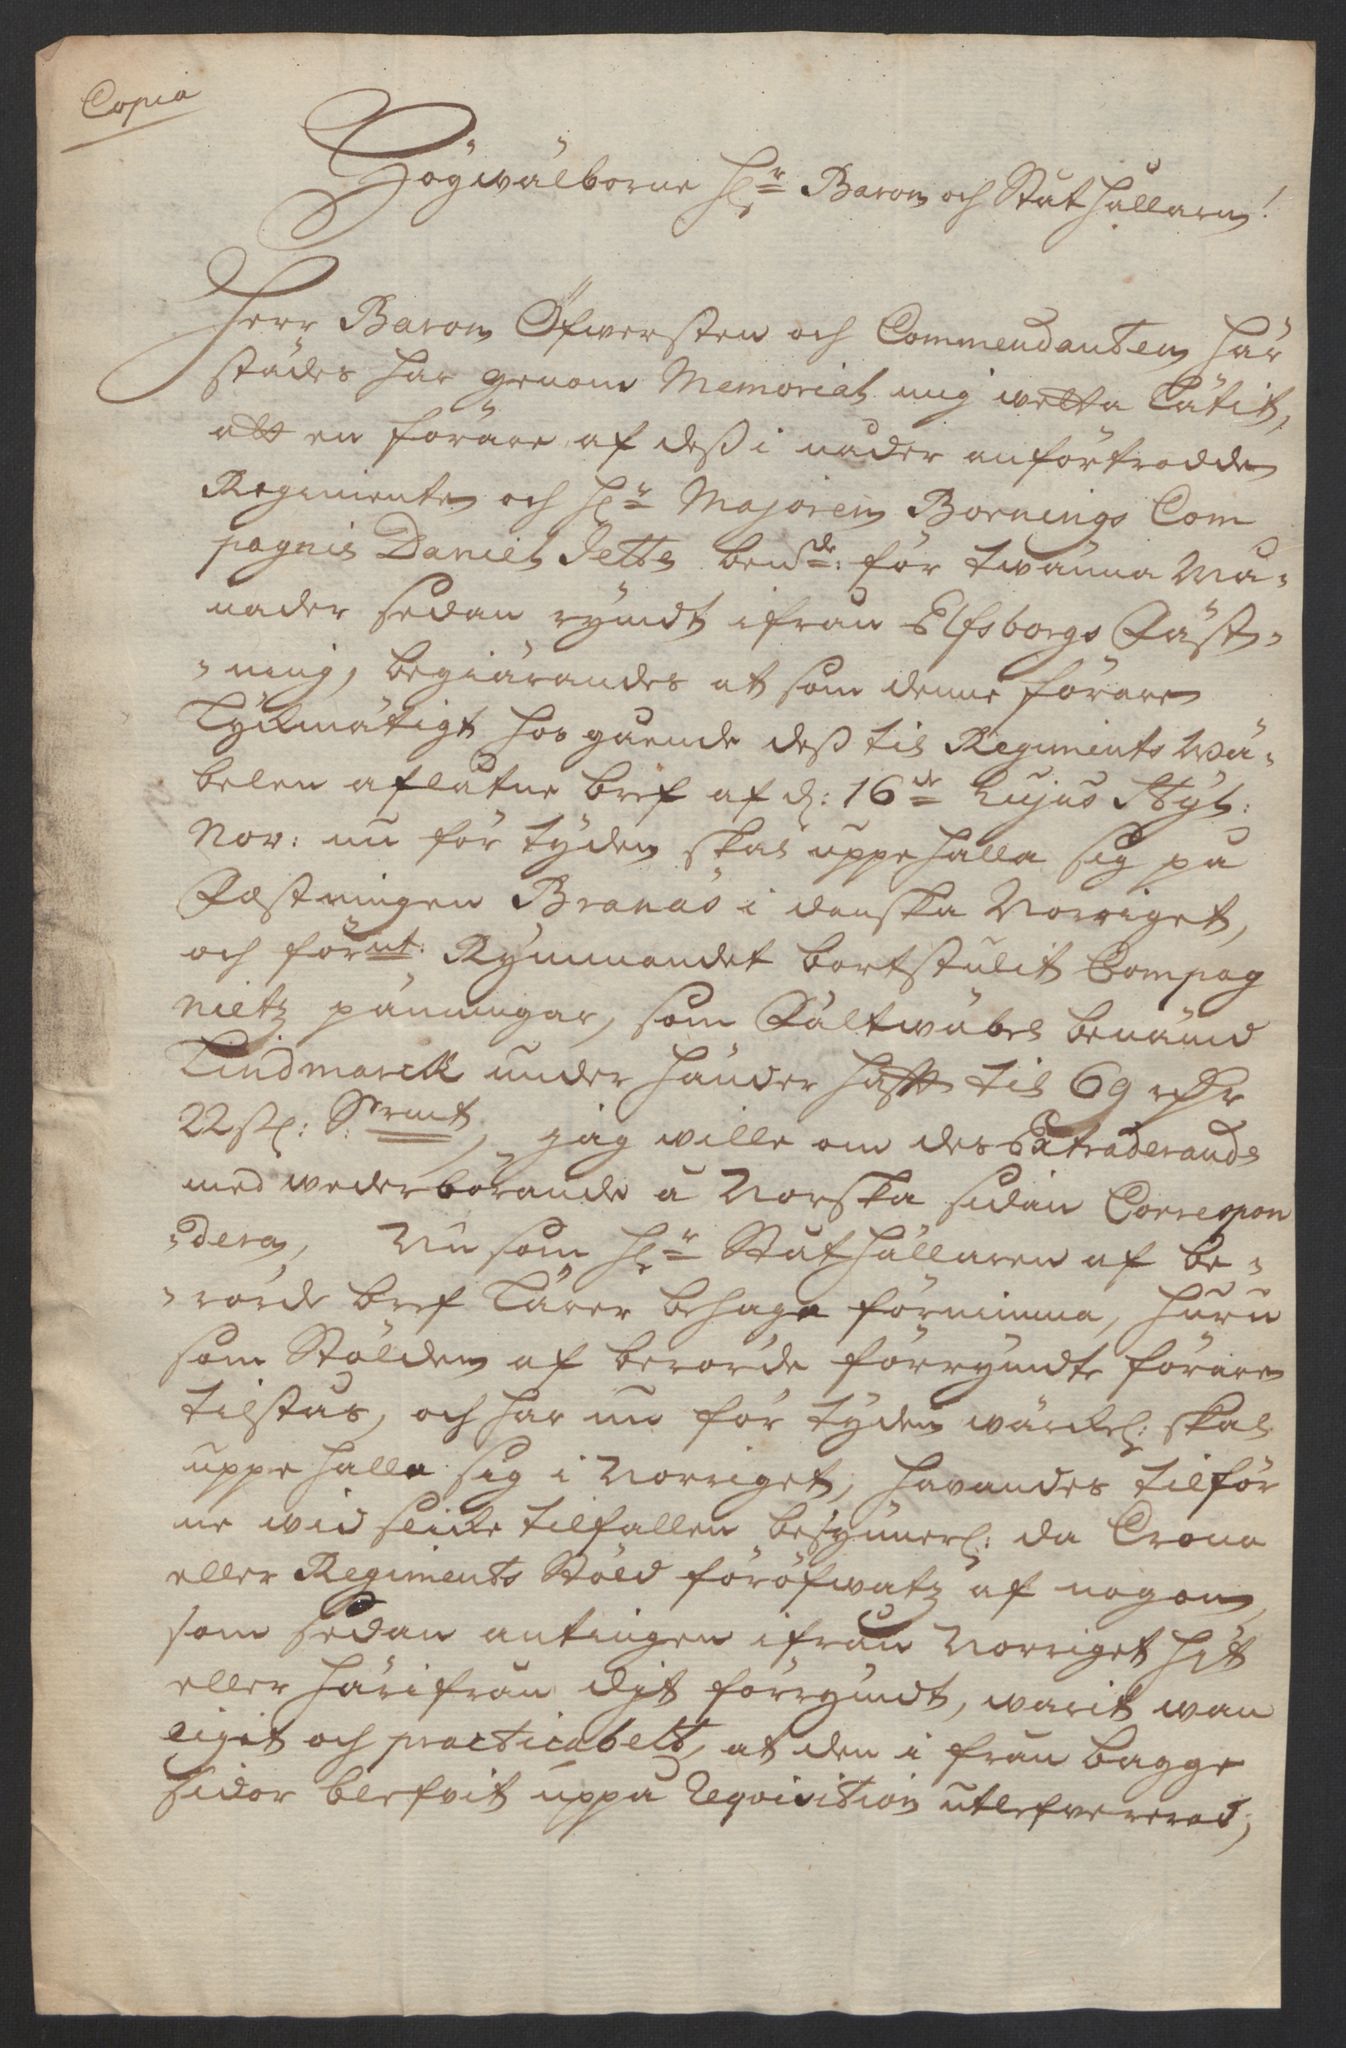 Copia
Högwälborne Hr Baron och Stathållarn!
Herr Baron Öfwersten och Commendanten här
städes har genom Memorial mig wetta låtit,
att en förare af dess i nåder anförtrodde
Regimente och Hr Majoren Bornings Com
pagnie Daniel bend: för twänna Må-
nader sedan rymdt ifrån Elfsborgs Fäst-
-ning, begiärandes at som denne förare
lyckmätigt hos gående dess til Regiments Wä-
belen aflåtne bref af d: 16de hujus Styl:
Nov: nu för tyden skal uppehålla sig på
Fæstningen Branäs i danska Norriget,
och förmt: Rymmandet bortstulit Compag
nietz pänningar, som Fältwäbel benämd
Lindmarck under händer hafft til 69 rdr
22 S: S:rmt, jag wille om des Extraderande
med wederbörande å Norska sidan Correspon
-dera, Nu som Hr Stathållaren af be-
-rörde bref lärer behaga förnimma, huru
som Stölden af berörde förrymdte förare
tilstås, och har nu för tyden wärckel: skal
uppehålla sig i Norriget, havandes tilför
ne wid slicke tilfallen besynnerl: da Crono
eller Regiments Stöld föröfwatz af nogon,
som sedan antingen ifrån Norriget hit
eller härifrån dyt förrymdt, warit wan
ligit och practicabelt, at den i från bagge
sidor blefvit uppå Reqvisition utlefvererad;